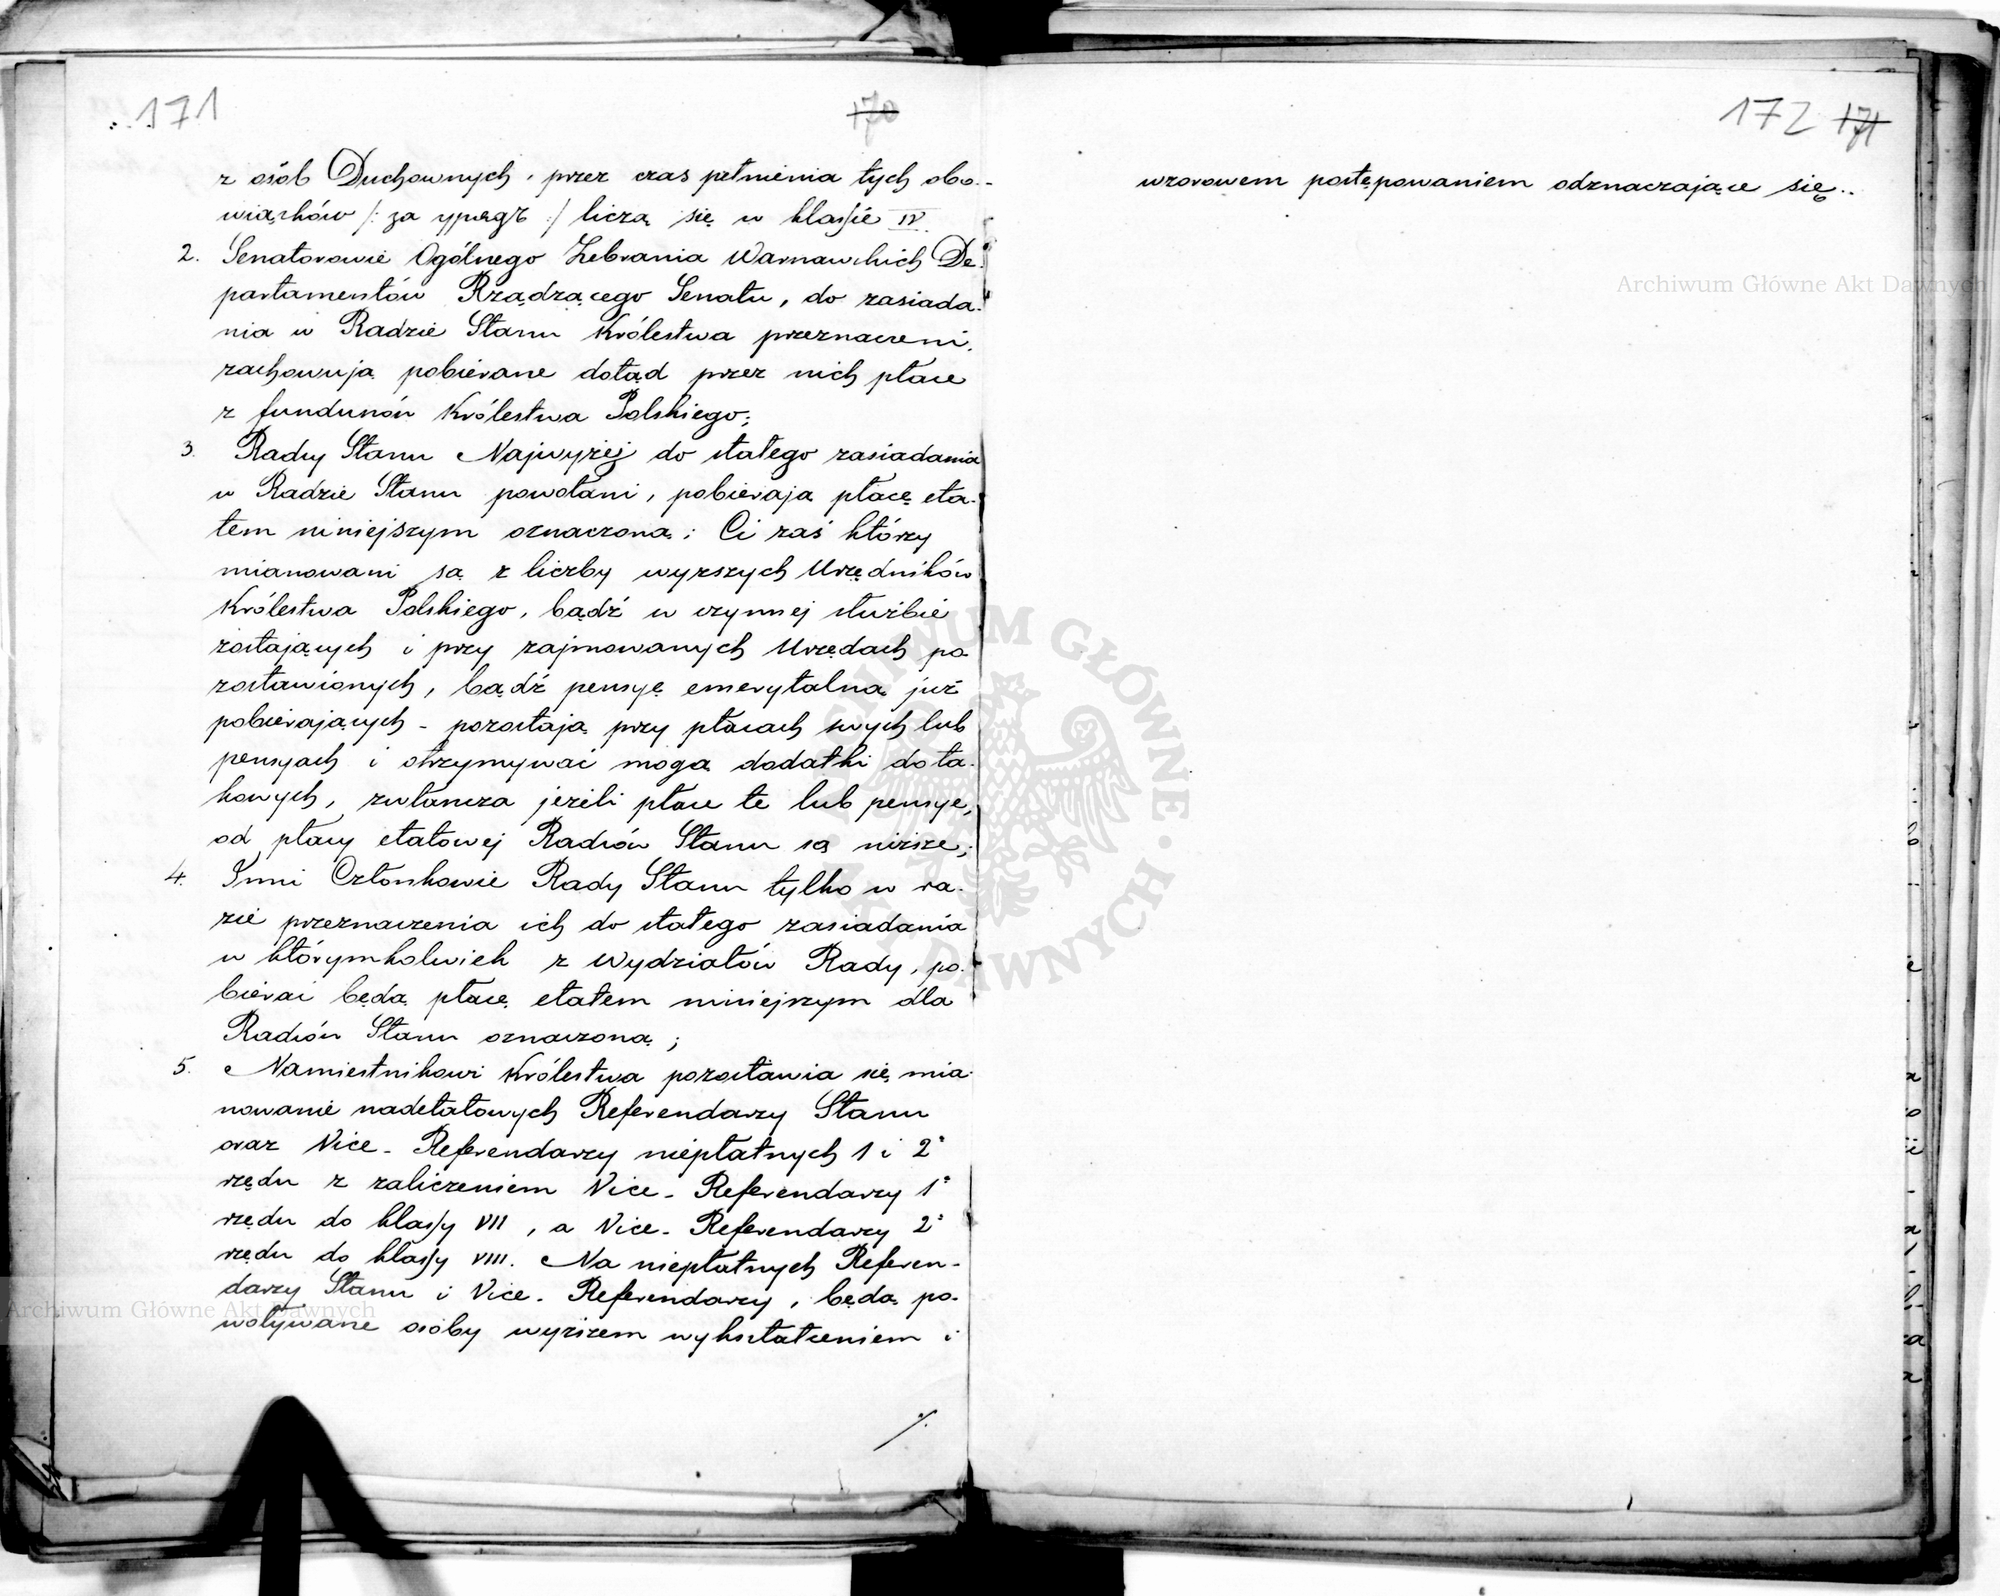 171
170
z osób Duchownych, przez czas pełnienia tych obo-
wiązków /: за урядъ :/ liczą się w klassie IV.
2. Senatorowie Ogólnego Zebrania Warszawskich De-
partamentów Rządzącego Senatu, do zasiada-
nia w Radzie Stanu Królestwa przeznaczeni,
zachowują pobierane dotąd przez nich płace
z funduszów Królestwa Polskiego;
3. Radcy Stanu Najwyżej do stałego zasiadania
w Radzie Stanu powołani, pobierają płacę eta-
tem niniejszym oznaczoną; Ci zaś którzy
mianowani są z liczby wyższych Urzędników
Królestwa Polskiego, bądź w czynnej służbie
zostających i przy zajmowanych Urzędach po
zostawionych, bądź pensyę emerytalną już
pobierających - pozostają przy płacach swych lub
pensyach i otrzymywać mogą dodatki do ta-
kowych, zwłaszcza jeżeli płace te lub pensye,
od płacy etatowej Radców Stanu są niższe;
4. Inni Członkowie Rady Stanu tylko w ra-
zie przeznaczenia ich do stałego zasiadania
w którymkolwiek z Wydziałów Rady, po-
bierać będą płacę etatem niniejszym dla
Radców Stanu oznaczoną;
5. Namiestnikowi Królestwa pozostawia się mia-
nowanie nadetatowych Referendarzy Stanu
oraz Vice-Referendarzy niepłatnych 1 i 2°
rzędu z zaliczeniem Vice-Referendarzy 1°
rzędu do klassy VII, a Vice-Referendarzy 2°
rzędu do klassy VIII. Na niepłatnych Referen-
darzy Stanu i Vice-Referendarzy, będą po-
woływane osoby wyższem wykształceniem i
./.
172 171
wzorowem postępowaniem odznaczające się..
Archiwum Główne Akt Dawnych
Archiwum Główne Akt Dawnych
ARCHIWUM GŁÓWNE AKT DAWNYCH